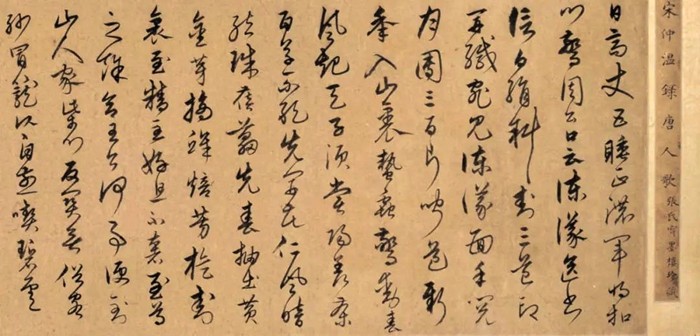 宋仲温録唐人歌 張氏
日高丈五睡正濃軍將扣
門驚周公口云諫議送書
信白絹斜封三道印
開緘宛見諫議面手閲
月團三百片聞道新
年入山裏蟄蟲驚動春
風起天子須嘗陽羨茶
百草不敢先開花仁風暗
結珠蓓蕾先春抽出黄
金芽摘鮮焙芳旋封
裹至精至好且不奢至尊
之餘合王公何事便到
山人家柴門反關無俗客
紗帽籠頭自煎喫碧雲